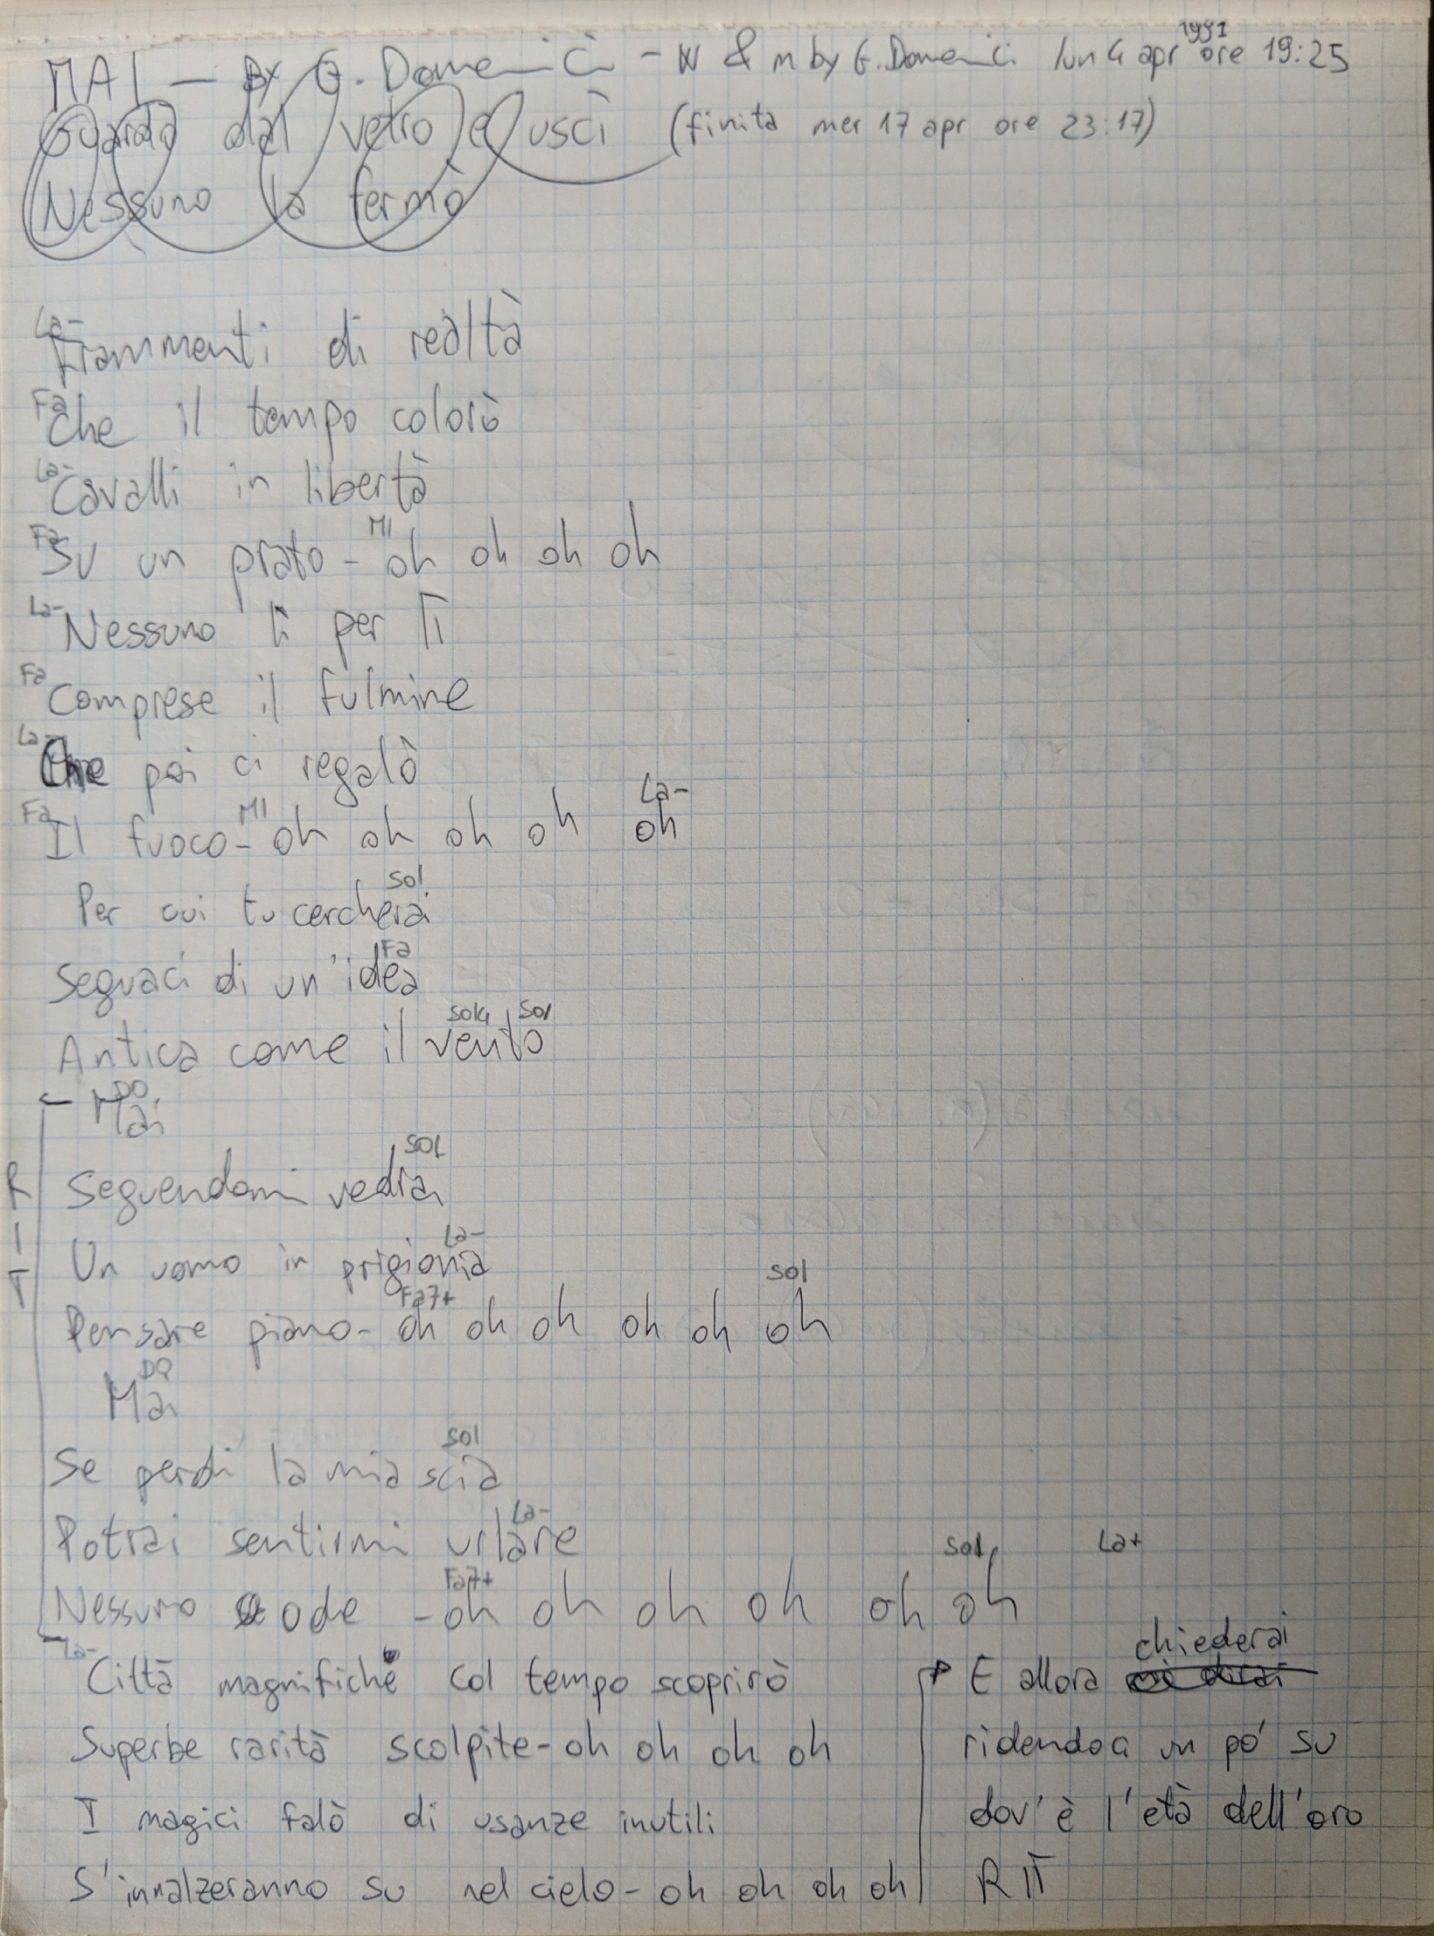 MAI - By G. Domenici - W & m by G. Domenici lun 4 apr 1991 ore 19:25
Guardò dal vetro e uscì (finita mer 17 apr ore 23:17)
Nessuno la fermò
La-
Frammenti di realtà
Fa
Che il tempo colorò
La-
Cavalli in libertà
Fa MI
Su un prato - oh oh oh oh
La-
Nessuno lì per lì
Fa
Comprese il fulmine
La-
Che poi ci regalò
Fa MI La-
Il fuoco - oh oh oh oh oh
Sol
Per cui tu cercherai
Fa
Seguaci di un'idea
Sol4 Sol
Antica come il vento
DO
Mai
SOL
Seguendomi vedrai
La-
Un uomo in prigionia
Fa7+ Sol
Pensare piano - oh oh oh oh oh oh
DO
Mai
Sol
Se perdi la mia scia
La-
Potrai sentirmi urlare
Fa7+ Sol La+
Nessuno ode - oh oh oh oh oh oh
RIT
La-
Città magnifiche col tempo scoprirò
Superbe rarità scolpite - oh oh oh oh
I magici falò di usanze inutili
S'innalzeranno su nel cielo - oh oh oh oh
chiederai
E allora
ridendoci un pò su
dov'è l'età dell'oro
RIT